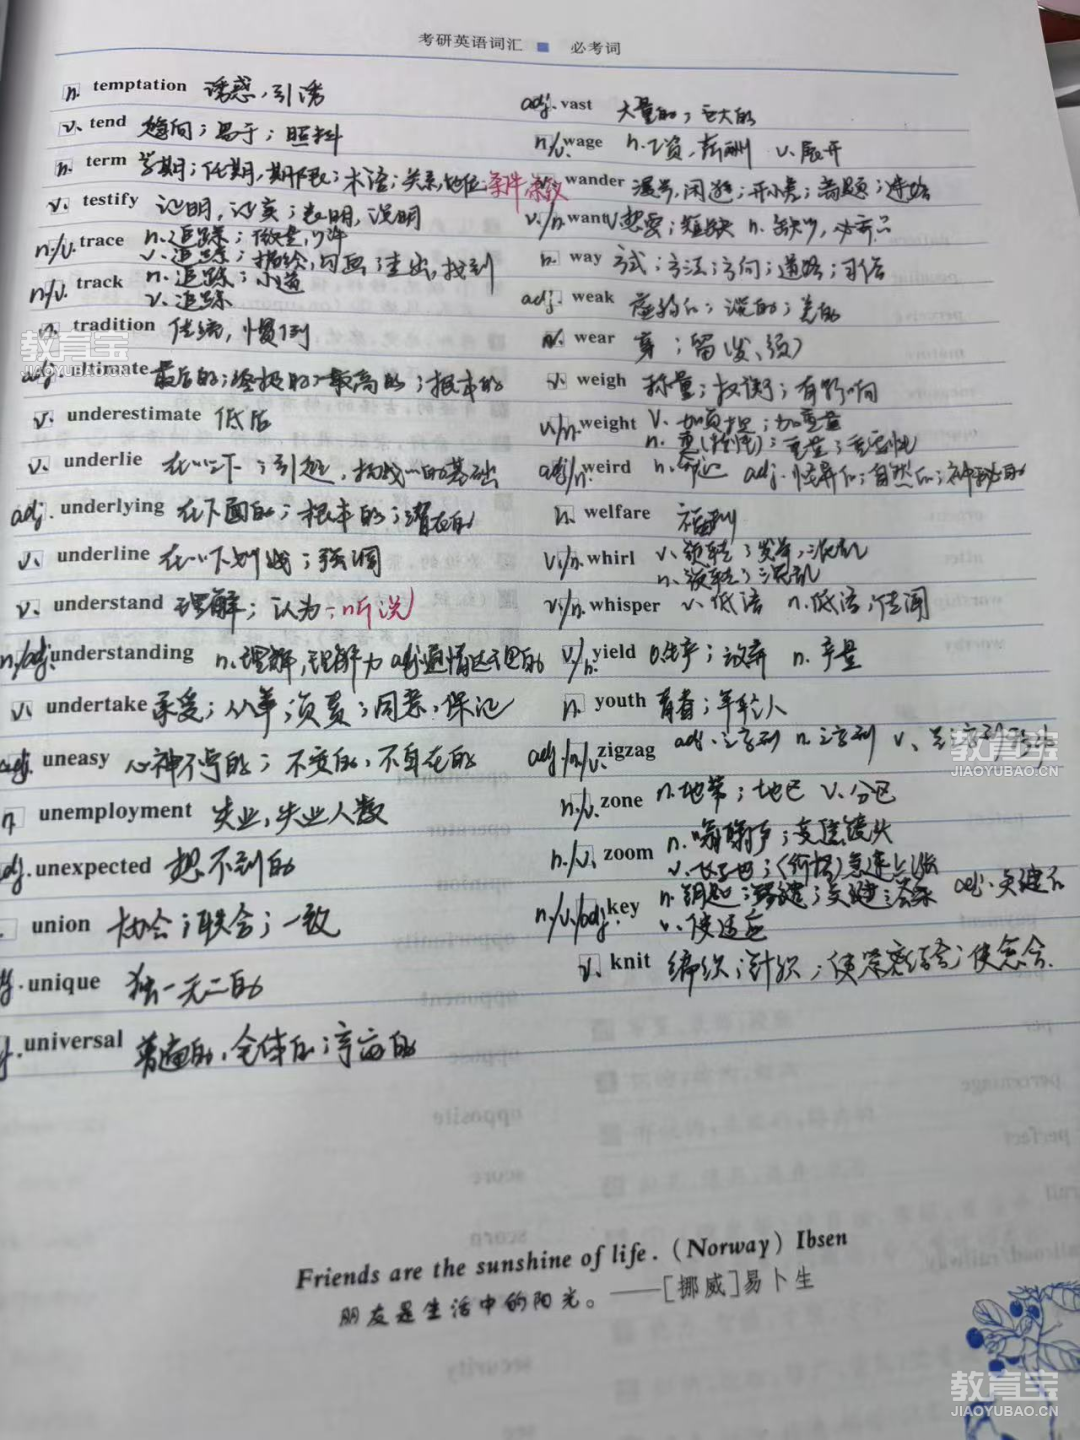 考研英语词汇 ■ 必考词
n. temptation 诱惑，引诱
v. tend 趋向；易于；照料
n. term 学期；任期，期限；术语；关系，地位；条件 条款
v. testify 证明，证实；表明，说明
n./v. trace n. 追踪；微量，少许
v. 追踪；描绘，勾画；查出，找到
n./v. track n. 追踪；小道
v. 追踪
n. tradition 传统，惯例
adj. ultimate 最后的；终极的；最高的；根本的
v. underestimate 低估
v. underlie 在…下；引起，构成…的基础
adj. underlying 在下面的；根本的；潜在的
v. underline 在…下划线；强调
v. understand 理解；认为；听说
n./adj. understanding n. 理解，理解力 adj. 通情达理的
v. undertake 承受；从事；负责；同意，保证
adj. uneasy 心神不宁的；不安的，不自在的
n. unemployment 失业，失业人数
adj. unexpected 想不到的
union 协会；联合；一致
unique 独一无二的
universal 普遍的，全体的；宇宙的
adj. vast 大量的；巨大的
n./v. wage n. 工资，薪酬 v. 展开
wander 漫步，闲逛；开小差；离题；迷路
v./n. want v. 想要；短缺 n. 缺少，必需品
n. way 方式；方法；方向；道路；习俗
adj. weak 虚弱的；淡的；差的
v. wear 穿；留（发、须）
v. weigh 称量；权衡；有影响
v./n. weight v. 加负担；加重量
n. 重（特性）；重量；重要性
adj/n. weird n. 命运 adj. 怪异的；自然的；神秘的
n. welfare 福利
v./n. whirl v. 旋转；发晕；混乱
n. 旋转；混乱
v./n. whisper v. 低语 n. 低语；传闻
v./n. yield 生产；放弃 n. 产量
n. youth 青春；年轻人
adj./n./v. zigzag adj. 之字形 n. 之字形 v.
n./v. zone n. 地带；地区 v. 分区
n./v. zoom n. 嗡嗡声；变焦镜头
v. （价格）急速上涨
n./v./adj. key n. 钥匙；关键；答案 adj. 关键的
v. 使适应
v. knit 编织；针织；使紧密结合；使愈合
Friends are the sunshine of life. (Norway) Ibsen
朋友是生活中的阳光。——[挪威]易卜生
教育宝
JIAOYUBAO.CN
教育宝
JIAOYUBAO.CN
教育宝
JIAOYUBAO.CN